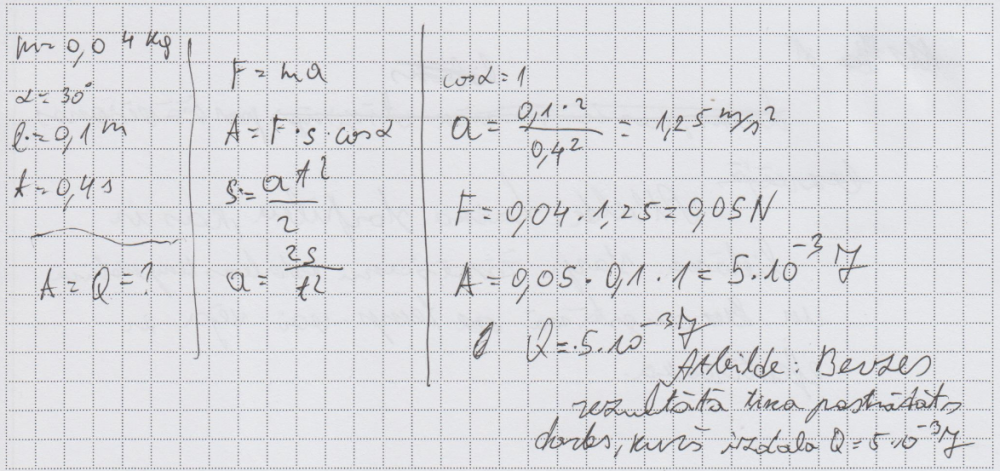 m = 0,04 kg
α = 30°
l = 0,1 m
t = 0,4 s
A = Q = ?
F = ma
A = F · s · cosα
s = at²/2
a = 2s/t²
cosα = 1
a = 0,1 · 2 / 0,4² = 1,25 m/s²
F = 0,04 · 1,25 = 0,05 N
A = 0,05 · 0,1 · 1 = 5 · 10⁻³ J
Q = 5 · 10⁻³ J
Atbilde: Berzes
rezultātā tika pastrādāts
darbs, kurš izdala Q = 5 · 10⁻³ J